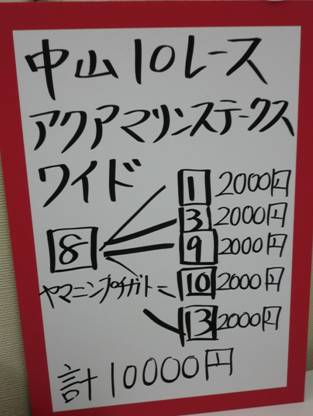 中山10レース
アクアマリンステークス
ワイド
1 2000円
3 2000円
8 9 2000円
ヤマニンプチガトー 10 2000円
13 2000円
計10000円